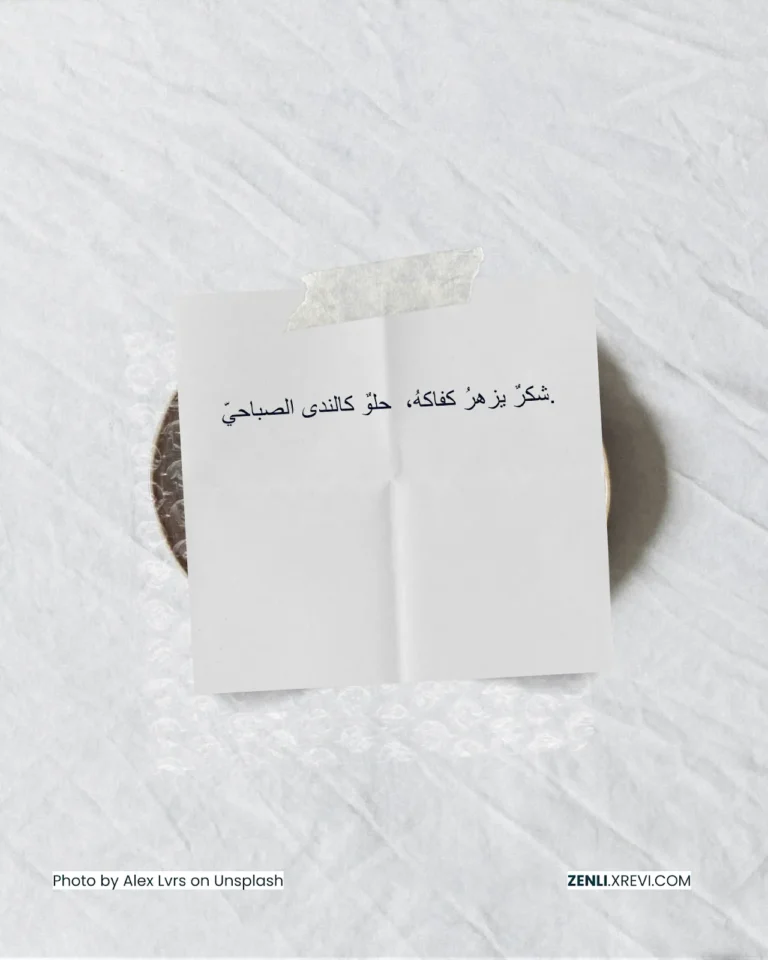 شكرٌ يزهرُ كفاكهُ، حلوٌ كالندى الصباحيّ.
Photo by Alex Lvrs on Unsplash
ZENLI.XREVI.COM